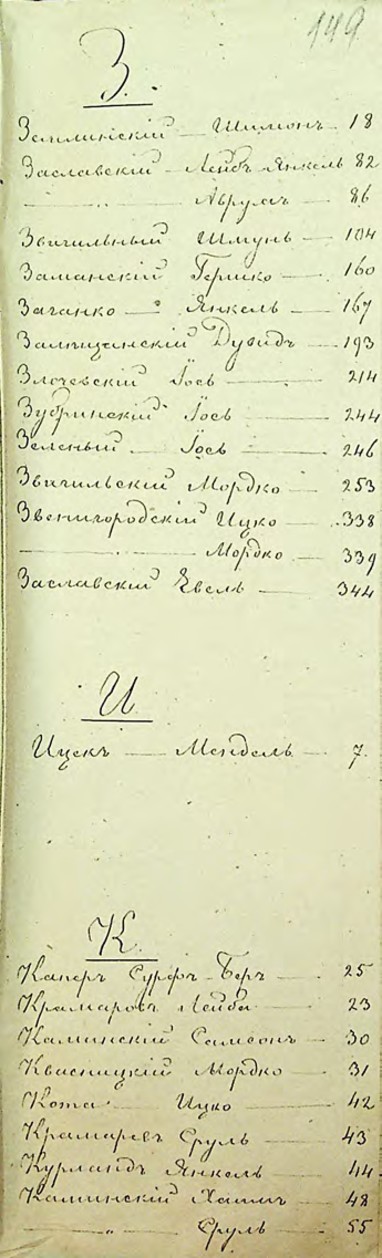 149
З.
Землинскій — Шимонъ — 18
Заславскій — Лейбъ Янкель 82
— „ — Аврумъ — 86
Звигильный Шмунь — 104
Заманскій Гершко — 160
Заганко — Янкель — 167
Залищанскій Дувидъ — 193
Злочевскій Іось — 214
Зубринскій Іось — 244
Зеленый — Іось — 246
Звигильскій Мордко — 253
Звенигородскій Ицко — 338
— Мордко — 339
Заславскій Евель — 344
И
Ицекъ — Мендель — 7.
К.
Каперъ Суръ-Беръ — 25
Крамаровъ Лейба — 23
Каминскій Самсонъ — 30
Квасницкій Мордко — 31
Кота Ицко — 42
Крамаревъ Сруль — 43
Курландъ Янкель — 44
Каминскій Хаимъ — 48
— „ — Сруль — 55